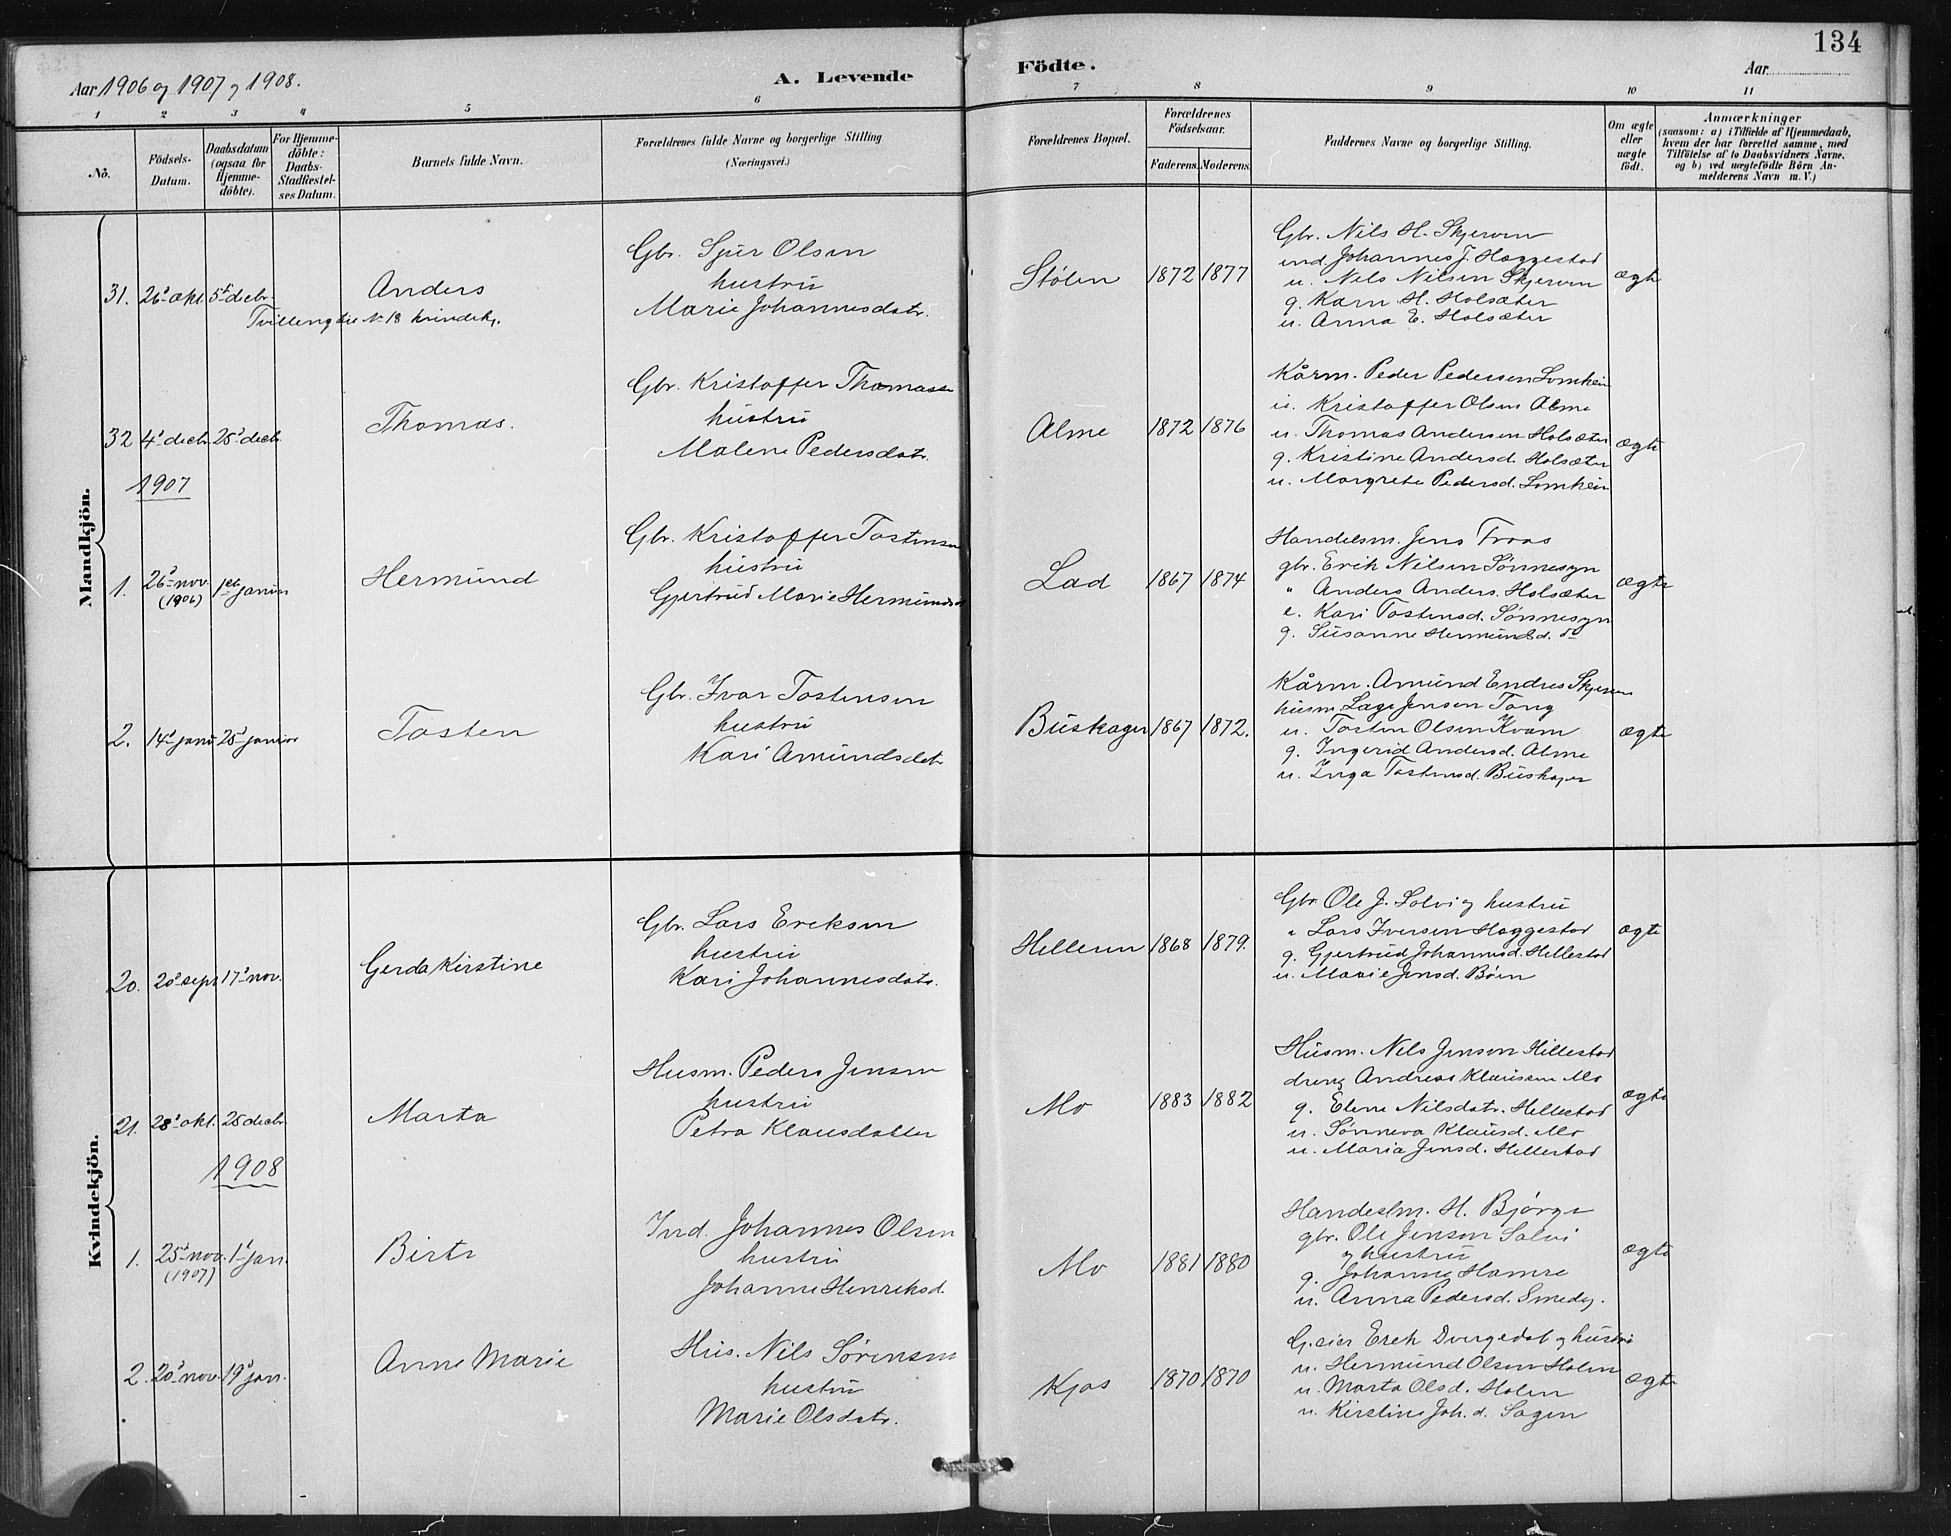 134
Aar 1906 og 1907 og 1908.
A. Levende Födte.
Aar
1 2 3 4 5 6 7 8 9 10 11
No.
Födsels-Datum.
Daabsdatum (ogsaa for Hjemme-döbte).
For Hjemme-döbte: Daabs-Stadfæstel-ses Datum.
Barnets fulde Navn.
Forældrenes fulde Navne og borgerlige Stilling
(Næringsvei.)
Forældrenes Bopæl.
Forældrenes Födselsaar.
Faderens. Moderens.
Faddernes Navne og borgerlige Stilling.
Om ægte eller uægte födt.
Anmærkninger
(saasom: a) i Tilfælde af Hjemmedaab,
hvem der har forrettet samme, med
Tilföielse af to Daabsvidners Navne,
og b) ved uægtefödte Börn An-
melderens Navn m. V.)
Mandkjön.
31. 26' okt. 5' decbr. Anders
Tvilling til No 18 kvindekj.
Gbr. Sjur Olsen
hustru
Marie Johannesdatr.
Stölen 1872 1877
Gbr. Nils H. Skjerven
ind. Johannes J. Haggestad
u. Nils Nilsen Skjerven
g. Karn H. Holsæter
u. Anna E. Holsæter
ægte
32 4' decb. 25' decb. Thomas.
Gbr. Kristoffer Thomassen
hustru
Malene Pedersdatr.
Alme 1872 1876
Kårm. Peder Pedersen Lomheim
u. Kristoffer Olsen Alme
u. Thomas Andersen Holsæter
g. Kristine Andersd. Holsæter
u. Margrete Pedersd. Lomheim
ægte
1907
1. 26' nov. (1906) 1ste januar Hermund
Gbr. Kristoffer Tostensen
hustru
Gjertrud Marie Hermundsd
Lad 1867 1874
Handelsm. Jens Fraas
gbr. Erik Nilsen Sönnesyn
" Anders Anders. Holsæter
e. Kari Tostensd. Sönnesyn
g. Susanne Hermundsd. do
ægte
2. 14' janu 25' januar Tosten
Gbr. Ivar Tostensen
hustru
Kari Amundsdatr
Buskager 1867 1872.
Kårm. Amund Endres. Skjerven
husm. Lage Jensen Tang
u. Tosten Olsen Kvam
g. Ingerid Andersd. Alme
u. Inga Tostensd. Buskager
ægte
Kvindekjön.
20. 20' sept 17' nov. Gerda Kirstine
Gbr. Lars Eriksen
hustru
Kari Johannesdatr.
Helleren 1868 1879.
Gbr Ole J. Solvi og hustru
" Lars Iversen Haggestad
g. Gjertrud Johannesd. Hellestad
u. Marie Jensd. Böen
ægte
21. 28' okt. 26 decbr. Marta
Husm. Peder Jensen
hustru
Petra Klausdatter
Mo 1883 1882
Husm. Nils Jenson Hillestad
dreng Andreas Klausen Mo
g. Elene Nilsdatr. Hellestad
u. Sönneva Klausd. Mo
u. Maria Jensd. Hellestad
ægte
1908
1. 25' nov. (1907) 1' jan. Birte
Ind. Johannes Olsen
hustru
Johanne Henriksd.
Mo 1881 1880
Handeslm. H. Björge
gbr. Ole Jenson Solvi
og hustru
g. Johanne Hamre
u. Anna Pedersd. Smedeg.
ægte
2. 20' nov. 19' jan. Anne Marie
Hus. Nils Sörensen
hustru
Marie Olsdatr.
Kjos 1870 1870
G.eier Erik Dvergedal og hustru
u. Hermund Olsen Holen
u. Marta Olsd. Holen
u. Kirstine Joh.d. Sagen
ægte